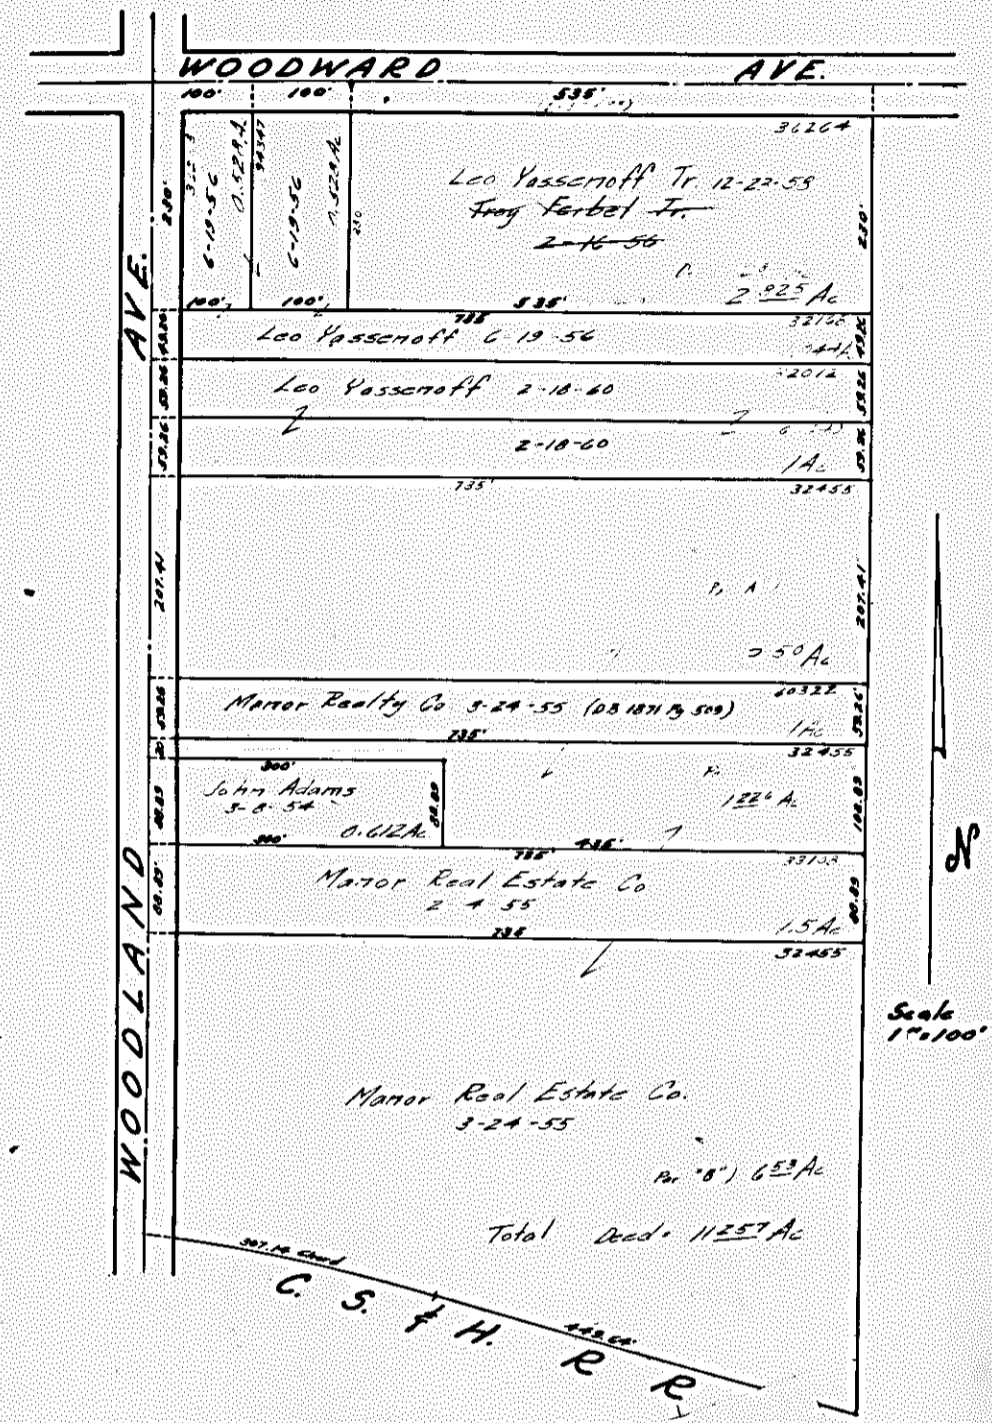 WOODWARD AVE.
100' 100' 535'
36264
6-19-56 0.528 Ac 94347
6-19-56 0.528 Ac
230
Leo Yassenoff Tr. 12-22-59
Troy Ferbel Tr.
2-16-56
2.925 Ac
230'
230'
100' 100' 535'
735
Leo Yassenoff 6-19-56
49.26
49.26
Leo Yassenoff 2-18-60
59.26
59.26
2-18-60
1 Ac
59.26
59.26
735'
32455
207.41
207.41
50 Ac
60322
Manor Realty Co 3-24-55 (DB 1871 Pg 509)
1 Ac
59.26
59.26'
735'
32455
20
300'
John Adams
3-8-54
0.612 Ac
88.89
88.89
1.226 Ac
108.89
300' 435'
735'
Manor Real Estate Co
2 4 55
1.5 Ac
88.89'
88.89
735
32455
Manor Real Estate Co.
3-24-55
Par "B") 6.53 Ac
Total Deed. 11.257 Ac
307.14 Chord
443.64'
C. S. & H. R R
WOODLAND AVE.
N
Scale
1"=100'